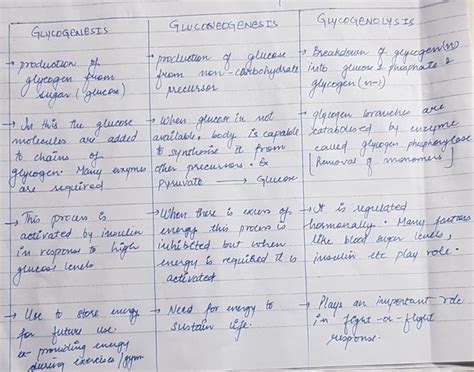 GLYCOGENESIS
→ production of
glycogen from
sugar (glucose)
→ In this the glucose
molecules are added
to chains of
glycogen. Many enzymes
are required
→ This process is
activated by insulin
in response to high
glucose levels
→ Use to store energy
for future use.
ex- providing energy
during exercise/gym
GLUCONEOGENESIS
→ production of glucose
from non-carbohydrate
precursor
→ When glucose is not
available, body is capable
to synthesise it from
other precursor. Ex
Pyruvate → Glucose
→ When there is excess of
energy this process is
inhibited but when
energy is required it is
activated
→ Need for energy to
sustain life.
GLYCOGENOLYSIS
→ Breakdown of glycogen(n)
into glucose 1 phosphate &
glycogen (n-1)
→ glycogen branches are
catabolised by enzyme
called glycogen phosphorylase
[Removal of monomers]
→ It is regulated
hormonally. Many factors
like blood sugar levels,
insulin etc play role.
→ Plays an important role
in fight-or-flight
response.